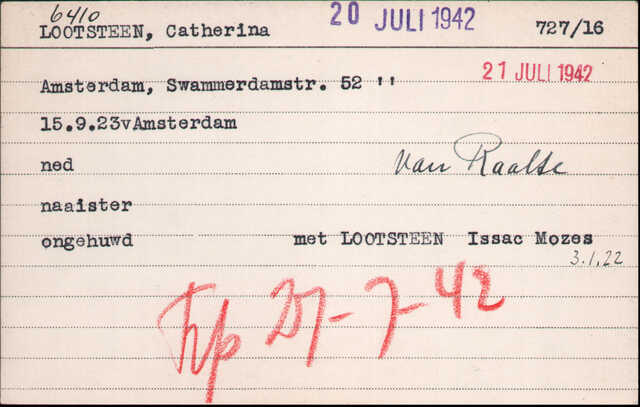 6410
LOOTSTEEN, Catherina 20 JULI 1942 727/16
Amsterdam, Swammerdamstr. 52 '' 21 JULI 1942
15.9.23vAmsterdam
ned van Raalte
naaister
ongehuwd met LOOTSTEEN Issac Mozes
3.1.22
Trp 27-7-42